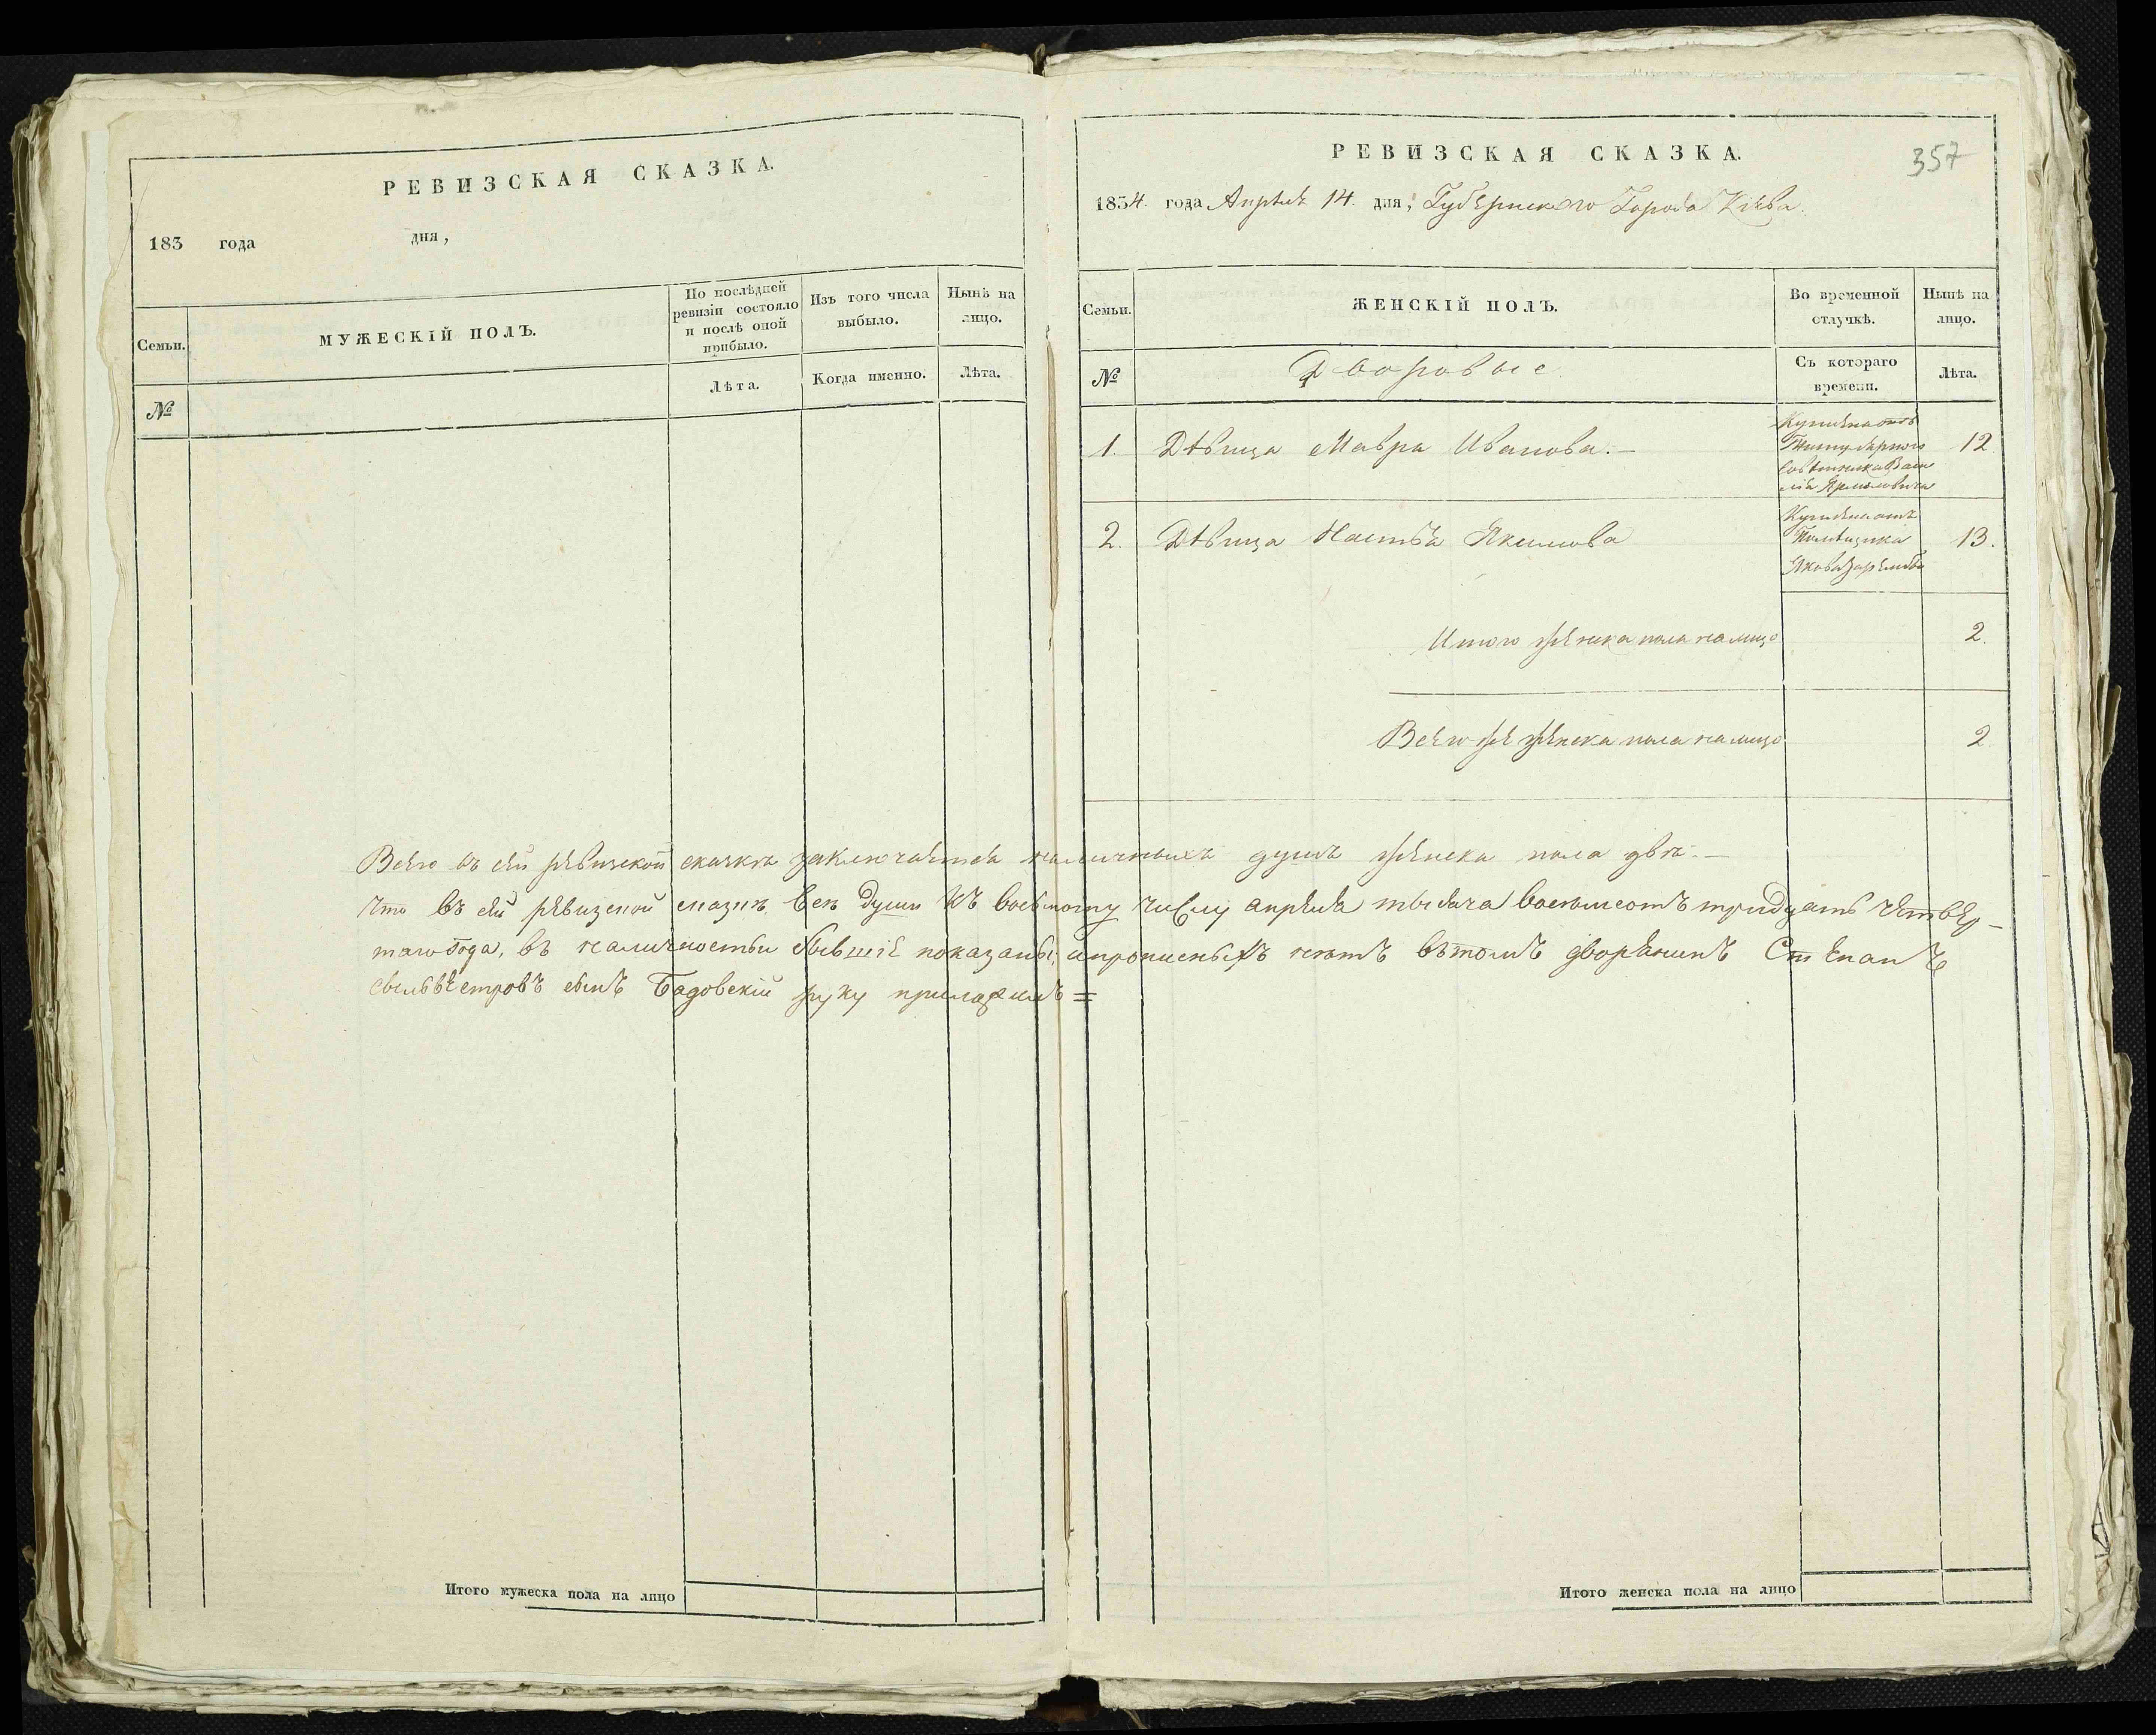 РЕВИЗСКАЯ СКАЗКА.
183 года дня,
Семьи.
МУЖЕСКІЙ ПОЛЪ.
По послѣдней
ревизіи состояло
и послѣ оной
прибыло.
Изъ того числа
выбыло.
Нынѣ на
лицо.
№
Лѣта.
Когда именно.
Лѣта.
Итого мужеска пола на лицо
РЕВИЗСКАЯ СКАЗКА.
357
1834. года Апрѣля 14. дня, Губернского Города Кіева.
Семьи.
ЖЕНСКІЙ ПОЛЪ.
Во временной
отлучкѣ.
Нынѣ на
лицо.
№
Дворовые
Съ котораго
времени.
Лѣта.
1. Дѣвица Мавра Иванова.
Куплена отъ
Титулярного
Совѣтника Васи
лія
12
2. Дѣвица Настья Якимова
Куплена отъ
Помѣщика
Якова
13.
Итого женска пола на лицо 2.
Всего же женска пола на лицо 2
Всего въ сей ревизской сказкѣ заключается наличныхъ душъ женска пола двѣ.
что въ сей ревизской сказкѣ всѣ души къ восьмому числу апреля тысяча восемьсотъ тридцать четвер-
таго года, въ наличности бывшіе показаны, и прописныхъ нѣтъ вътомъ дворенинъ Степанъ
Сильвестровъ сынъ Бадовскій руку приложилъ =
Итого женска пола на лицо